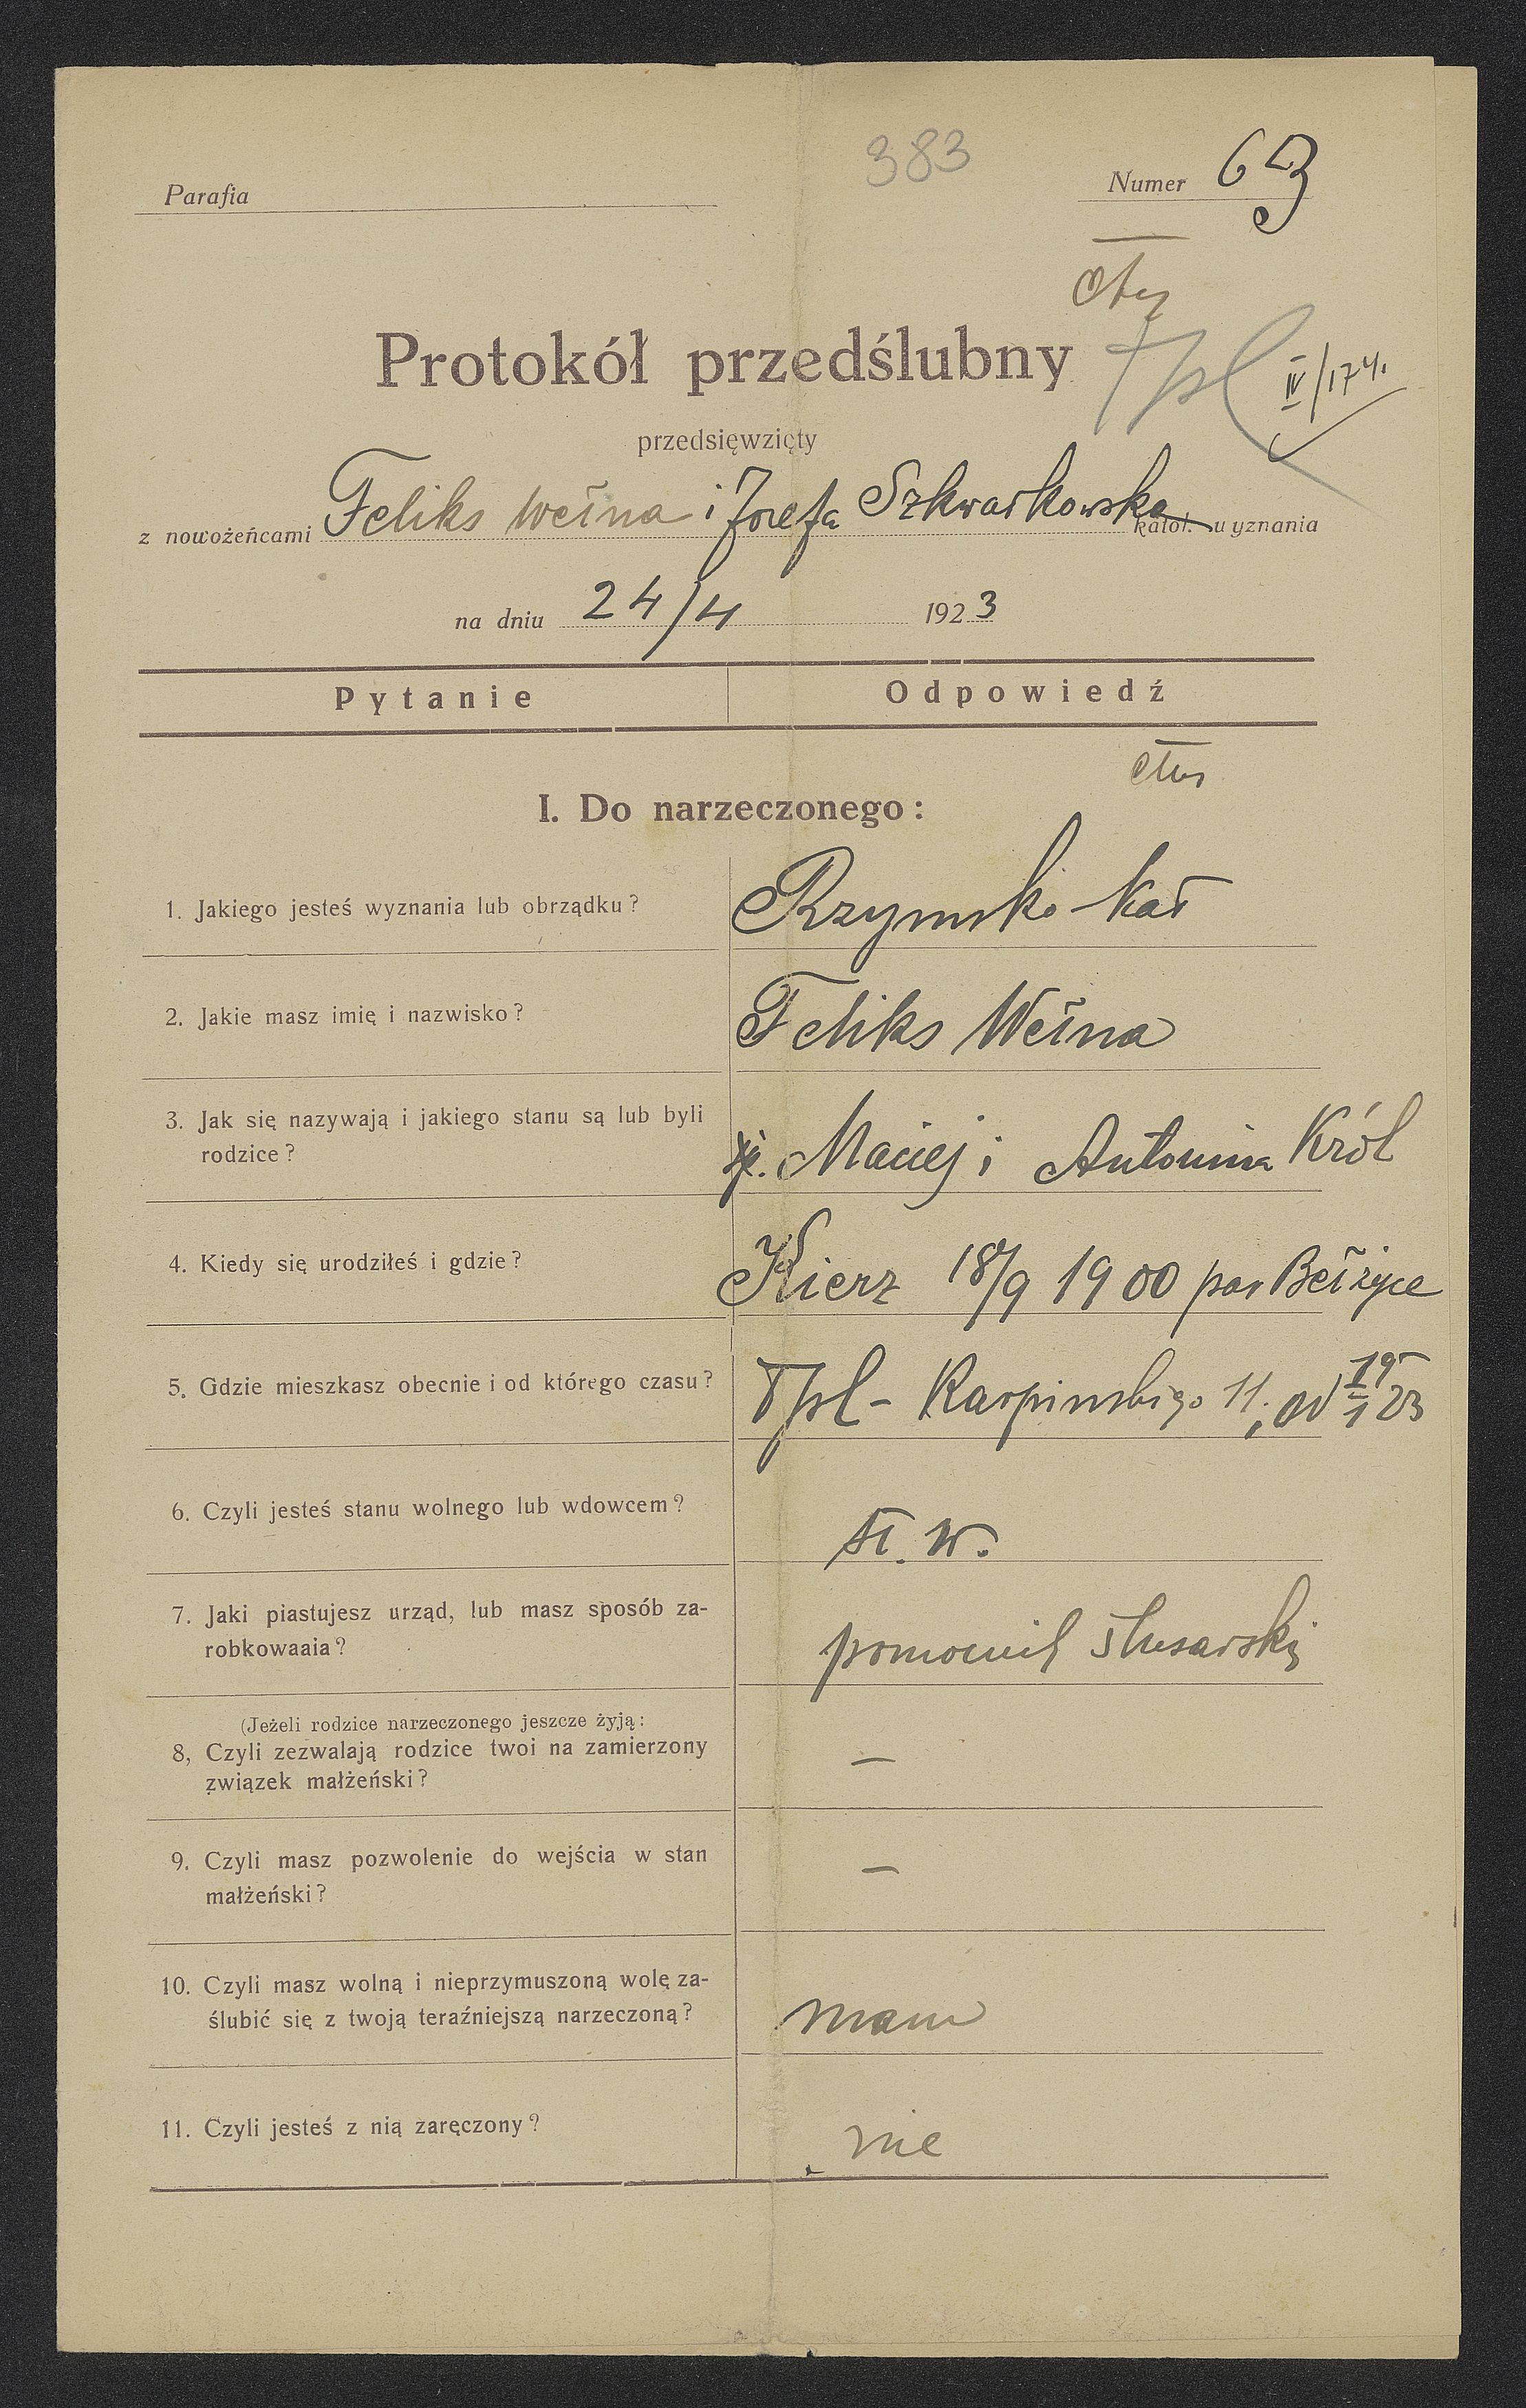 383
Parafia
Numer 63
Tpl
IV/174.
Protokół przedślubny
przedsięwzięty
z nowożeńcami Feliks Wełna i Józefa Szkwarkowska katol. wyznania
na dniu 24/4 1923
Pytanie Odpowiedź
I. Do narzeczonego:
1. Jakiego jesteś wyznania lub obrządku? Rzymsko-kat
2. Jakie masz imię i nazwisko? Feliks Wełna
3. Jak się nazywają i jakiego stanu są lub byli
rodzice? Maciej i Antonina Król
4. Kiedy się urodziłeś i gdzie? Kierz 18/9 1900 par Bełżyce
5. Gdzie mieszkasz obecnie i od którego czasu? Tpl - Karpinskiego 11, od 19/1 23
6. Czyli jesteś stanu wolnego lub wdowcem? st. w.
7. Jaki piastujesz urząd, lub masz sposób za-
robkowaaia? pomocnik ślusarski
(Jeżeli rodzice narzeczonego jeszcze żyją:
8, Czyli zezwalają rodzice twoi na zamierzony
związek małżeński? —
9. Czyli masz pozwolenie do wejścia w stan
małżeński? —
10. Czyli masz wolną i nieprzymuszoną wolę za-
ślubić się z twoją teraźniejszą narzeczoną? mam
11. Czyli jesteś z nią zaręczony? nie